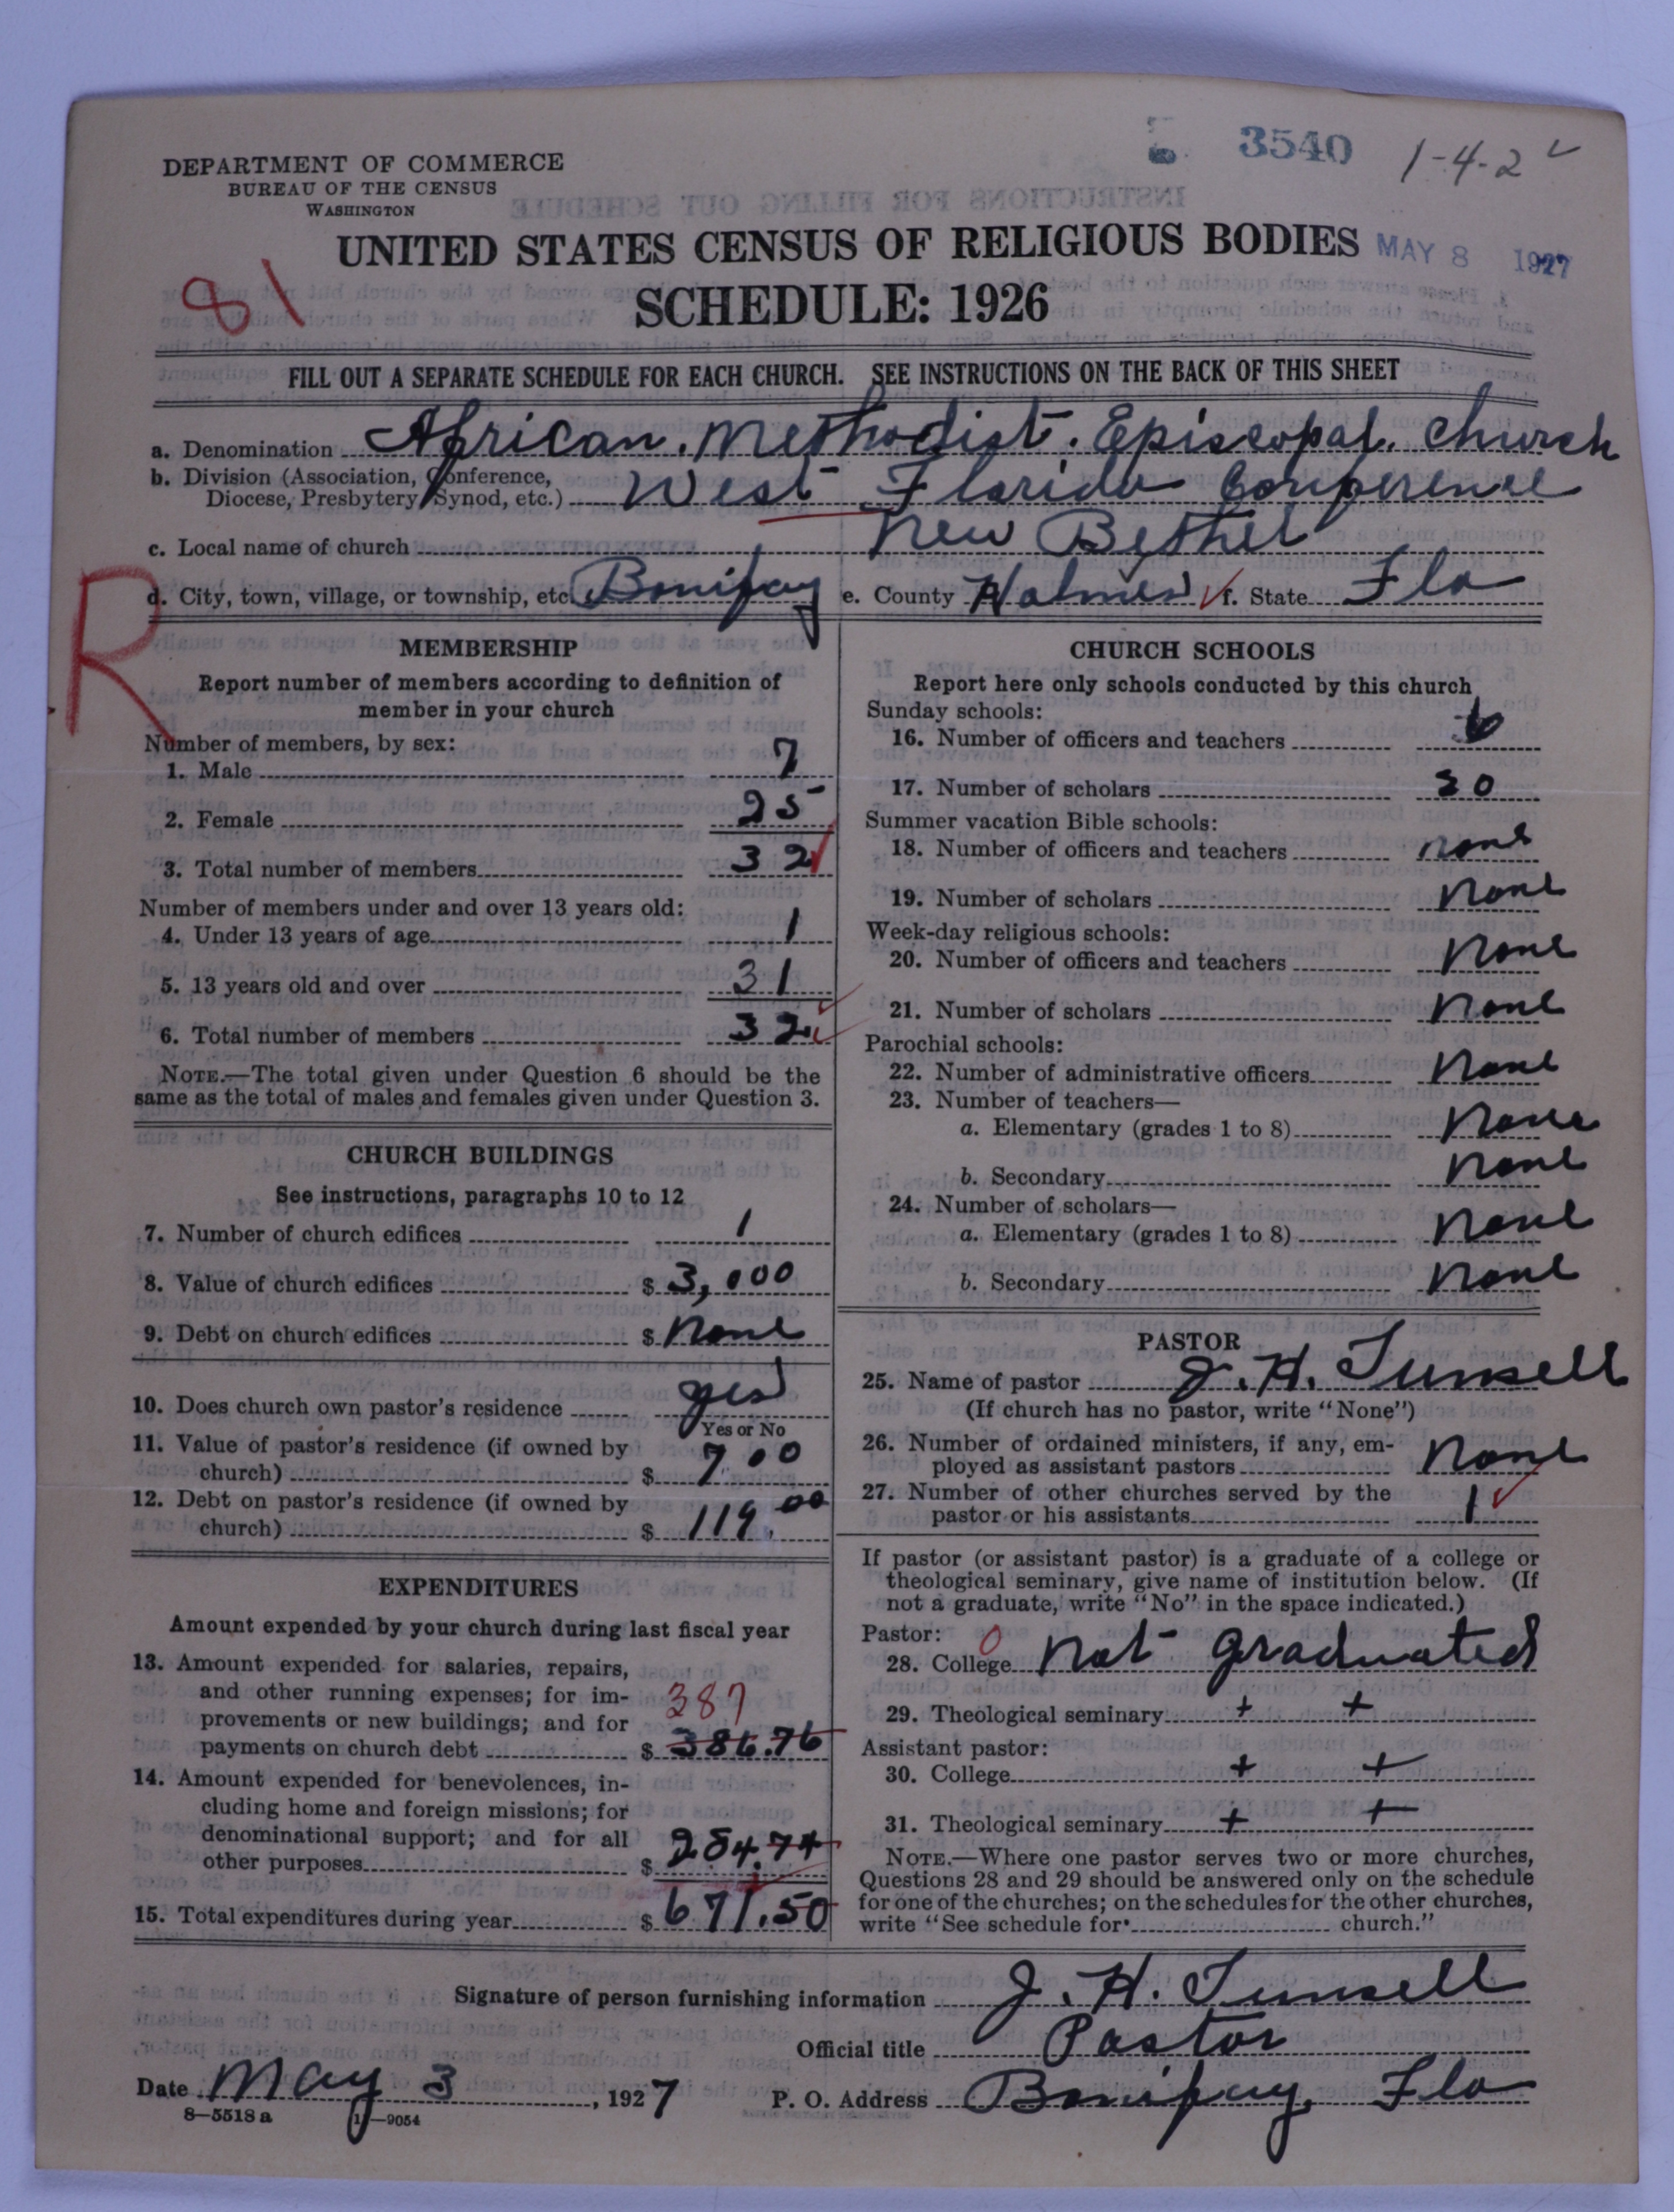 3540 1-4-2 ✓
DEPARTMENT OF COMMERCE
BUREAU OF THE CENSUS
WASHINGTON
UNITED STATES CENSUS OF RELIGIOUS BODIES
MAY 8 1927
81
SCHEDULE: 1926
FILL OUT A SEPARATE SCHEDULE FOR EACH CHURCH. SEE INSTRUCTIONS ON THE BACK OF THIS SHEET
a. Denomination African Methodist Episcopal Church
b. Division (Association, Conference,
Diocese, Presbytery, Synod, etc.) West Florida Conference
c. Local name of church New Bethel
d. City, town, village, or township, etc. Bonifay e. County Holmes ✓ f. State Fla
R
MEMBERSHIP
Report number of members according to definition of
member in your church
Number of members, by sex:
1. Male 7
2. Female 25
3. Total number of members 32
Number of members under and over 13 years old:
4. Under 13 years of age 1
5. 13 years old and over 31
6. Total number of members 32
NOTE.—The total given under Question 6 should be the
same as the total of males and females given under Question 3.
CHURCH BUILDINGS
See instructions, paragraphs 10 to 12
7. Number of church edifices 1
8. Value of church edifices $ 3,000
9. Debt on church edifices $ none
10. Does church own pastor's residence yes
Yes or No
11. Value of pastor's residence (if owned by
church) $ 700
12. Debt on pastor's residence (if owned by
church) $ 119.00
EXPENDITURES
Amount expended by your church during last fiscal year
13. Amount expended for salaries, repairs,
and other running expenses; for im-
387
provements or new buildings; and for
payments on church debt $ 386.76
14. Amount expended for benevolences, in-
cluding home and foreign missions; for
denominational support; and for all
other purposes $ 284.74
15. Total expenditures during year $ 671.50
CHURCH SCHOOLS
Report here only schools conducted by this church
Sunday schools:
16. Number of officers and teachers 6
17. Number of scholars 30
Summer vacation Bible schools:
18. Number of officers and teachers none
19. Number of scholars None
Week-day religious schools:
20. Number of officers and teachers None
21. Number of scholars None
Parochial schools:
22. Number of administrative officers None
23. Number of teachers—
a. Elementary (grades 1 to 8) None
b. Secondary None
24. Number of scholars—
a. Elementary (grades 1 to 8) None
b. Secondary None
PASTOR
25. Name of pastor J. H. Tunsell
(If church has no pastor, write "None")
26. Number of ordained ministers, if any, em-
ployed as assistant pastors None
27. Number of other churches served by the
pastor or his assistants 1 ✓
If pastor (or assistant pastor) is a graduate of a college or
theological seminary, give name of institution below. (If
not a graduate, write "No" in the space indicated.)
Pastor: 0
28. College Not graduated
29. Theological seminary + +
Assistant pastor:
30. College + +
31. Theological seminary + +
NOTE.—Where one pastor serves two or more churches,
Questions 28 and 29 should be answered only on the schedule
for one of the churches; on the schedules for the other churches,
write "See schedule for church."
Signature of person furnishing information J. H. Tunsell
Official title Pastor
Date May 3, 1927 P. O. Address Bonifay, Fla
8—5518 a 11—9054